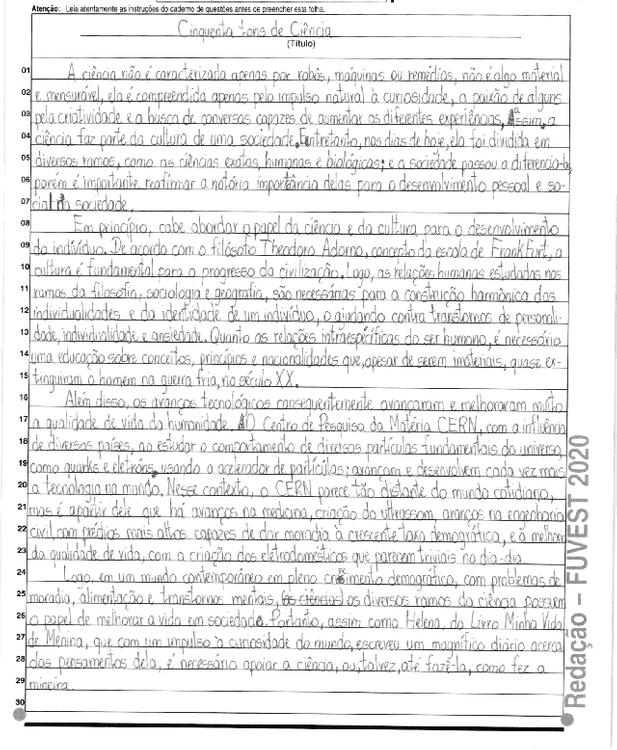 Atenção: Leia atentamente as instruções do caderno de questões antes de preencher esta folha.
Cinquenta tons de Ciência
(Título)
01 A ciência não é caracterizada apenas por robôs, máquinas ou remédios, não é algo material
02 e mensurável, ela é compreendida apenas pelo impulso natural à curiosidade, a paixão de alguns
03 pela criatividade e a busca de conversas capazes de aumentar as diferentes experiências. Assim, a
04 ciência faz parte da cultura de uma sociedade. Entretanto, nos dias de hoje, ela foi dividida em
05 diversos ramos, como as ciências exatas, humanas e biológicas; e a sociedade passou a diferenciá-las,
06 porém é importante reafirmar a notória importância delas para o desenvolvimento pessoal e so-
07 cial na sociedade.
08 Em princípio, cabe abordar o papel da ciência e da cultura para o desenvolvimento
09 do indivíduo. De acordo com o filósofo Theodoro Adorno, concepto da escola de Frankfurt, a
10 cultura é fundamental para o progresso da civilização. Logo, as relações humanas estudadas nos
11 ramos da filosofia, sociologia e geografia, são necessárias para a construção harmônica das
12 individualidades e da identidade de um indivíduo, o ajudando contra transtornos de personali-
13 dade, individualidade e ansiedade. Quanto as relações intraespecíficas do ser humano, é necessário
14 uma educação sobre conceitos, princípios e nacionalidades que, apesar de serem imateriais, quase ex-
15 tinguiram o homem na guerra fria, no século XX.
16 Além disso, os avanços tecnológicos consequentemente avançaram e melhoraram muito
17 a qualidade de vida da humanidade. O Centro de Pesquisa da Matéria CERN, com a influência
18 de diversos países, ao estudar o comportamento de diversas partículas fundamentais do universo,
19 como quarks e elétrons, usando o acelerador de partículas; avançam e desenvolvem cada vez mais
20 a tecnologia no mundo. Nesse contexto, o CERN parece tão distante do mundo cotidiano,
21 mas é apartir dele que há avanços na medicina, criação do ultrassom, avanços na engenharia
22 civil, com prédios mais altos capazes de dar moradia à crescente taxa demográfica, e a melhora
23 da qualidade de vida, com a criação dos eletrodomésticos que parecem triviais no dia-dia.
24 Logo, em um mundo contemporâneo em pleno crescimento demográfico, com problemas de
25 moradia, alimentação e transtornos mentais, (as ciências) os diversos ramos da ciência possuem
26 o papel de melhorar a vida em sociedade. Portanto, assim como Helena, do Livro Minha Vida
27 de Menina, que com um impulso à curiosidade do mundo, escreveu um magnífico diário acerca
28 dos pensamentos dela, é necessário apoiar a ciência, ou, talvez, até fazê-la, como fez a
29 mineira.
30
Redação – FUVEST 2020